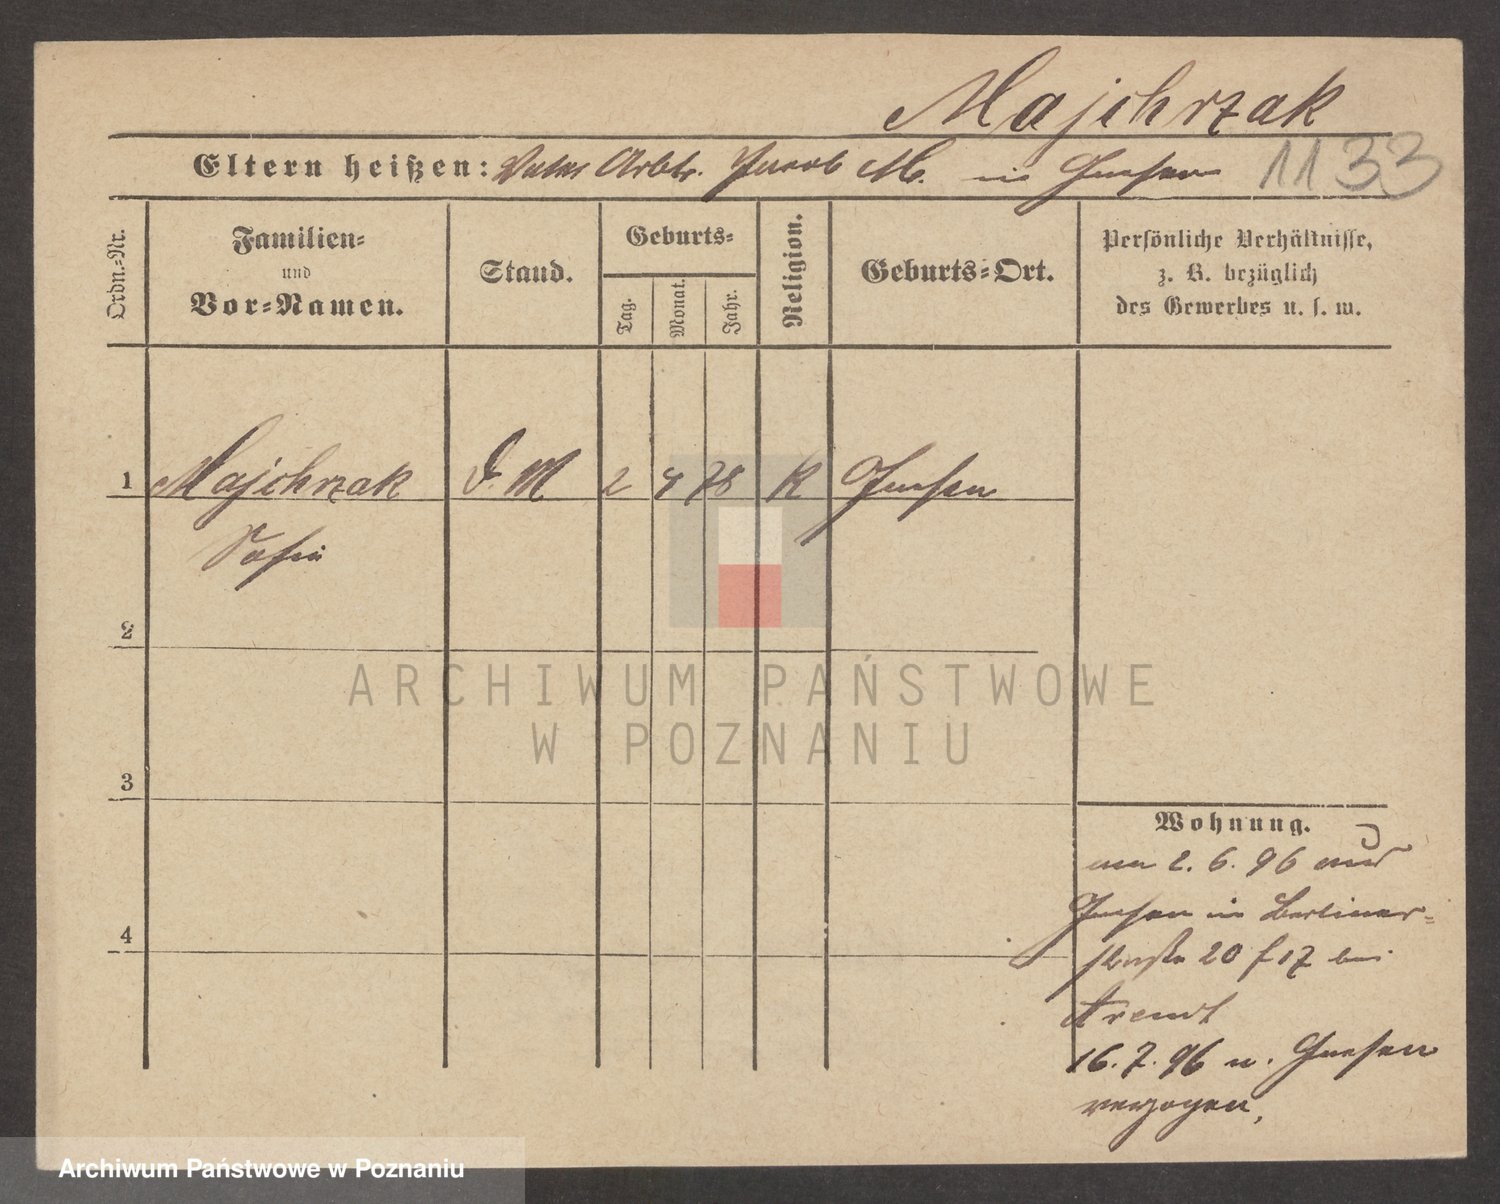 Majchrzak
Eltern heißen: Vater Arbtr. Jacob M. in Gnesen 1133
Ordn.-Nr.
Familien-
und
Vor-Namen.
Stand.
Geburts-
Tag.
Monat.
Jahr.
Religion.
Geburts-Ort.
Persönliche Verhältnisse,
z. B. bezüglich
des Gewerbes u. s. w.
1 Majchrzak D. M 2 4 78 K Gnesen
Sofie
2
3
4
Wohnung.
am 2. 6. 96 aus
Gnesen in Berliner-
straße 20 f 17 bei
Arendt
16. 7. 96 n. Gnesen
verzogen,
ARCHIWUM PAŃSTWOWE
W POZNANIU
Archiwum Państwowe w Poznaniu